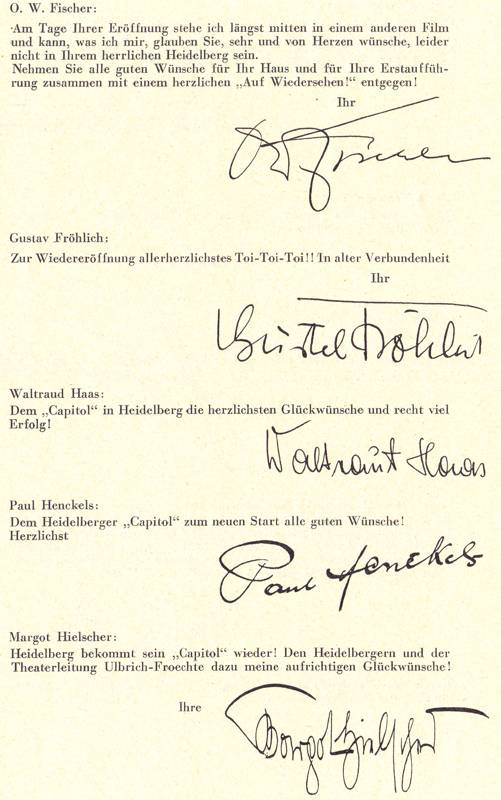 O. W. Fischer:
Am Tage Ihrer Eröffnung stehe ich längst mitten in einem anderen Film
und kann, was ich mir, glauben Sie, sehr und von Herzen wünsche, leider
nicht in Ihrem herrlichen Heidelberg sein.
Nehmen Sie alle guten Wünsche für Ihr Haus und für Ihre Erstauffüh-
rung zusammen mit einem herzlichen „Auf Wiedersehen!“ entgegen!
Ihr
OW Fischer
Gustav Fröhlich:
Zur Wiedereröffnung allerherzlichstes Toi-Toi-Toi!! In alter Verbundenheit
Ihr
Gustel Fröhlich
Waltraud Haas:
Dem „Capitol“ in Heidelberg die herzlichsten Glückwünsche und recht viel
Erfolg!
Waltraut Haas
Paul Henckels:
Dem Heidelberger „Capitol“ zum neuen Start alle guten Wünsche!
Herzlichst
Paul Henckels
Margot Hielscher:
Heidelberg bekommt sein „Capitol“ wieder! Den Heidelbergern und der
Theaterleitung Ulbrich-Froechte dazu meine aufrichtigen Glückwünsche!
Ihre
Margot Hielscher